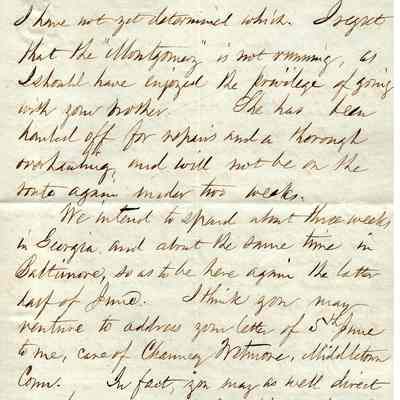 I have not yet determined which. I regret
that the "Montgomery" is not running, as
I should have enjoyed the privilege of going
with your brother. She has been
hauled off for repairs and a thorough
overhauling, and will not be on the
route again under two weeks.
We intend to spend about three weeks
in Georgia and about the same time in
Baltimore, so as to be here again the latter
half of June. I think you may
venture to address your letter of 5th June
to me, care of Chauncey Wetmore, Middletown
Conn. In fact, you may as well direct